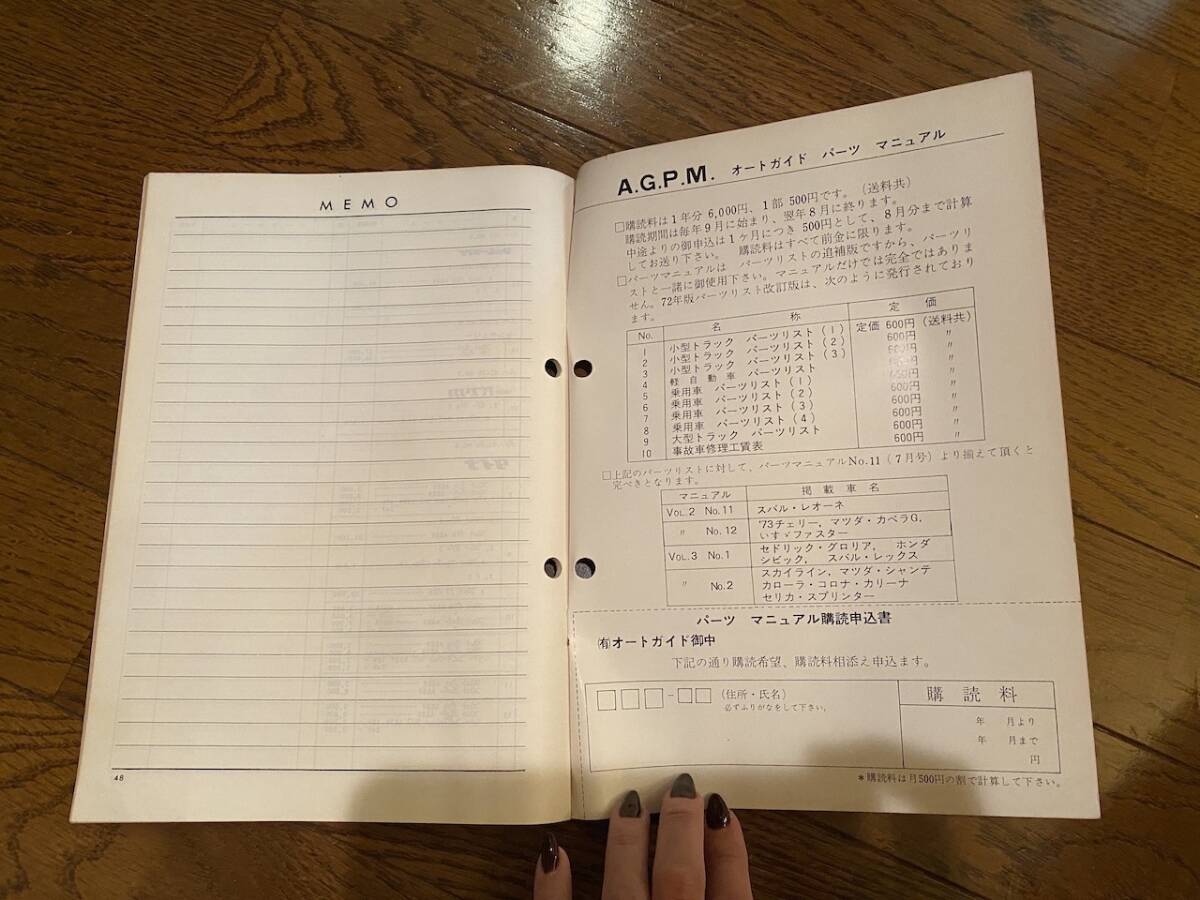 MEMO
48
A.G.P.M. オートガイド パーツ マニュアル
□購読料は1年分 6,000円、1部 500円です。(送料共)
購読期間は毎年9月に始まり、翌年8月に終ります。
中途よりの御申込は1ケ月につき 500円として、8月分まで計算
してお送り下さい。 購読料はすべて前金に限ります。
□パーツマニュアルは パーツリストの追補版ですから、パーツリ
ストと一諸に御使用下さい。マニュアルだけでは完全ではありま
せん。72年版パーツリスト改訂版は、次のように発行されており
ます。
No. 名 称 定 価
1 小型トラック パーツリスト(1) 定価 600円(送料共)
2 小型トラック パーツリスト(2) 600円 〃
3 小型トラック パーツリスト(3) 600円 〃
4 軽自動車 パーツリスト 〃
5 乗用車 パーツリスト(1) 〃
6 乗用車 パーツリスト(2) 600円 〃
7 乗用車 パーツリスト(3) 600円 〃
8 乗用車 パーツリスト(4) 600円 〃
9 大型トラック パーツリスト 600円 〃
10 事故車修理工賃表 600円 〃
□上記のパーツリストに対して、パーツマニュアルNo.11(7月号)より揃えて頂くと
完ぺきとなります。
マニュアル 掲載車名
VOL.2 No.11 スバル・レオーネ
〃 No.12 '73チェリー, マツダ・カペラG,
いすゞファスター
VOL.3 No.1 セドリック・グロリア, ホンダ
シビック, スバル・レックス
〃 No.2 スカイライン, マツダ・シャンテ
カローラ・コロナ・カリーナ
セリカ・スプリンター
パーツ マニュアル購読申込書
㈲オートガイド御中
下記の通り購読希望、購読料相添え申込ます。
□□□-□□ (住所・氏名)
必ずふりがなをして下さい。
購読料
年 月より
年 月まで
円
*購読料は月500円の割で計算して下さい。